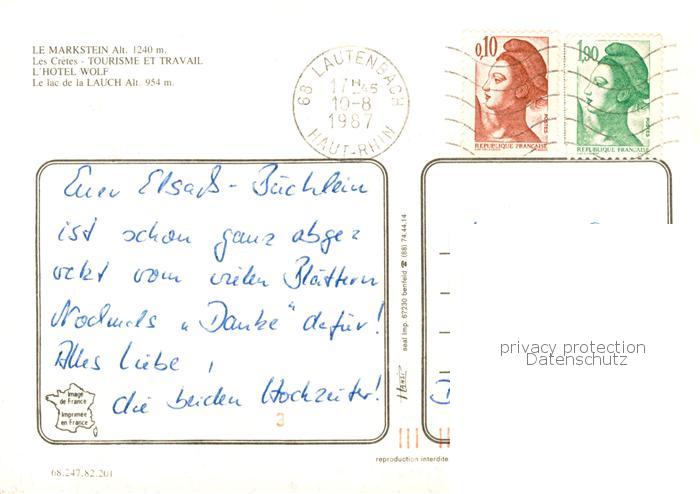 LE MARKSTEIN Alt. 1240 m.
Les Crêtes - TOURISME ET TRAVAIL
L'HOTEL WOLF
Le lac de la LAUCH Alt. 954 m.
68 LAUTENBACH
17H45
10-8
1987
HAUT-RHIN
0,10
POSTES
REPUBLIQUE FRANÇAISE
1,90
POSTES
REPUBLIQUE FRANÇAISE
Euer Elsaß-Büchlein
ist schon ganz abge=
wetzt vom vielen Blättern
Nochmals „Danke" dafür!
Alles Liebe,
die beiden Hochzeiter!
Image
de France
Imprimée
en France
3
68.247.82.201
seal Imp. 67230 benfeld ☎ (88) 74.44.14
reproduction interdite
privacy protection
Datenschutz